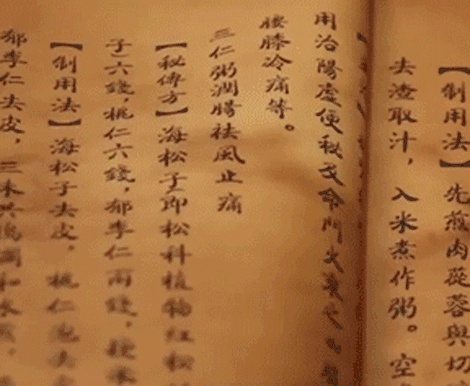 【制用法】先煎肉苁蓉與切
去渣取汁，入米煮作粥。空
用治陽虛便秘及命門火衰
腰膝冷痛等。
三仁粥潤腸祛風止痛
【秘傳方】海松子即松科植物紅松
子六錢，桃仁六錢，郁李仁兩錢，粳米
【制用法】海松子去皮，桃仁泡去
郁李仁去皮，三味共搗